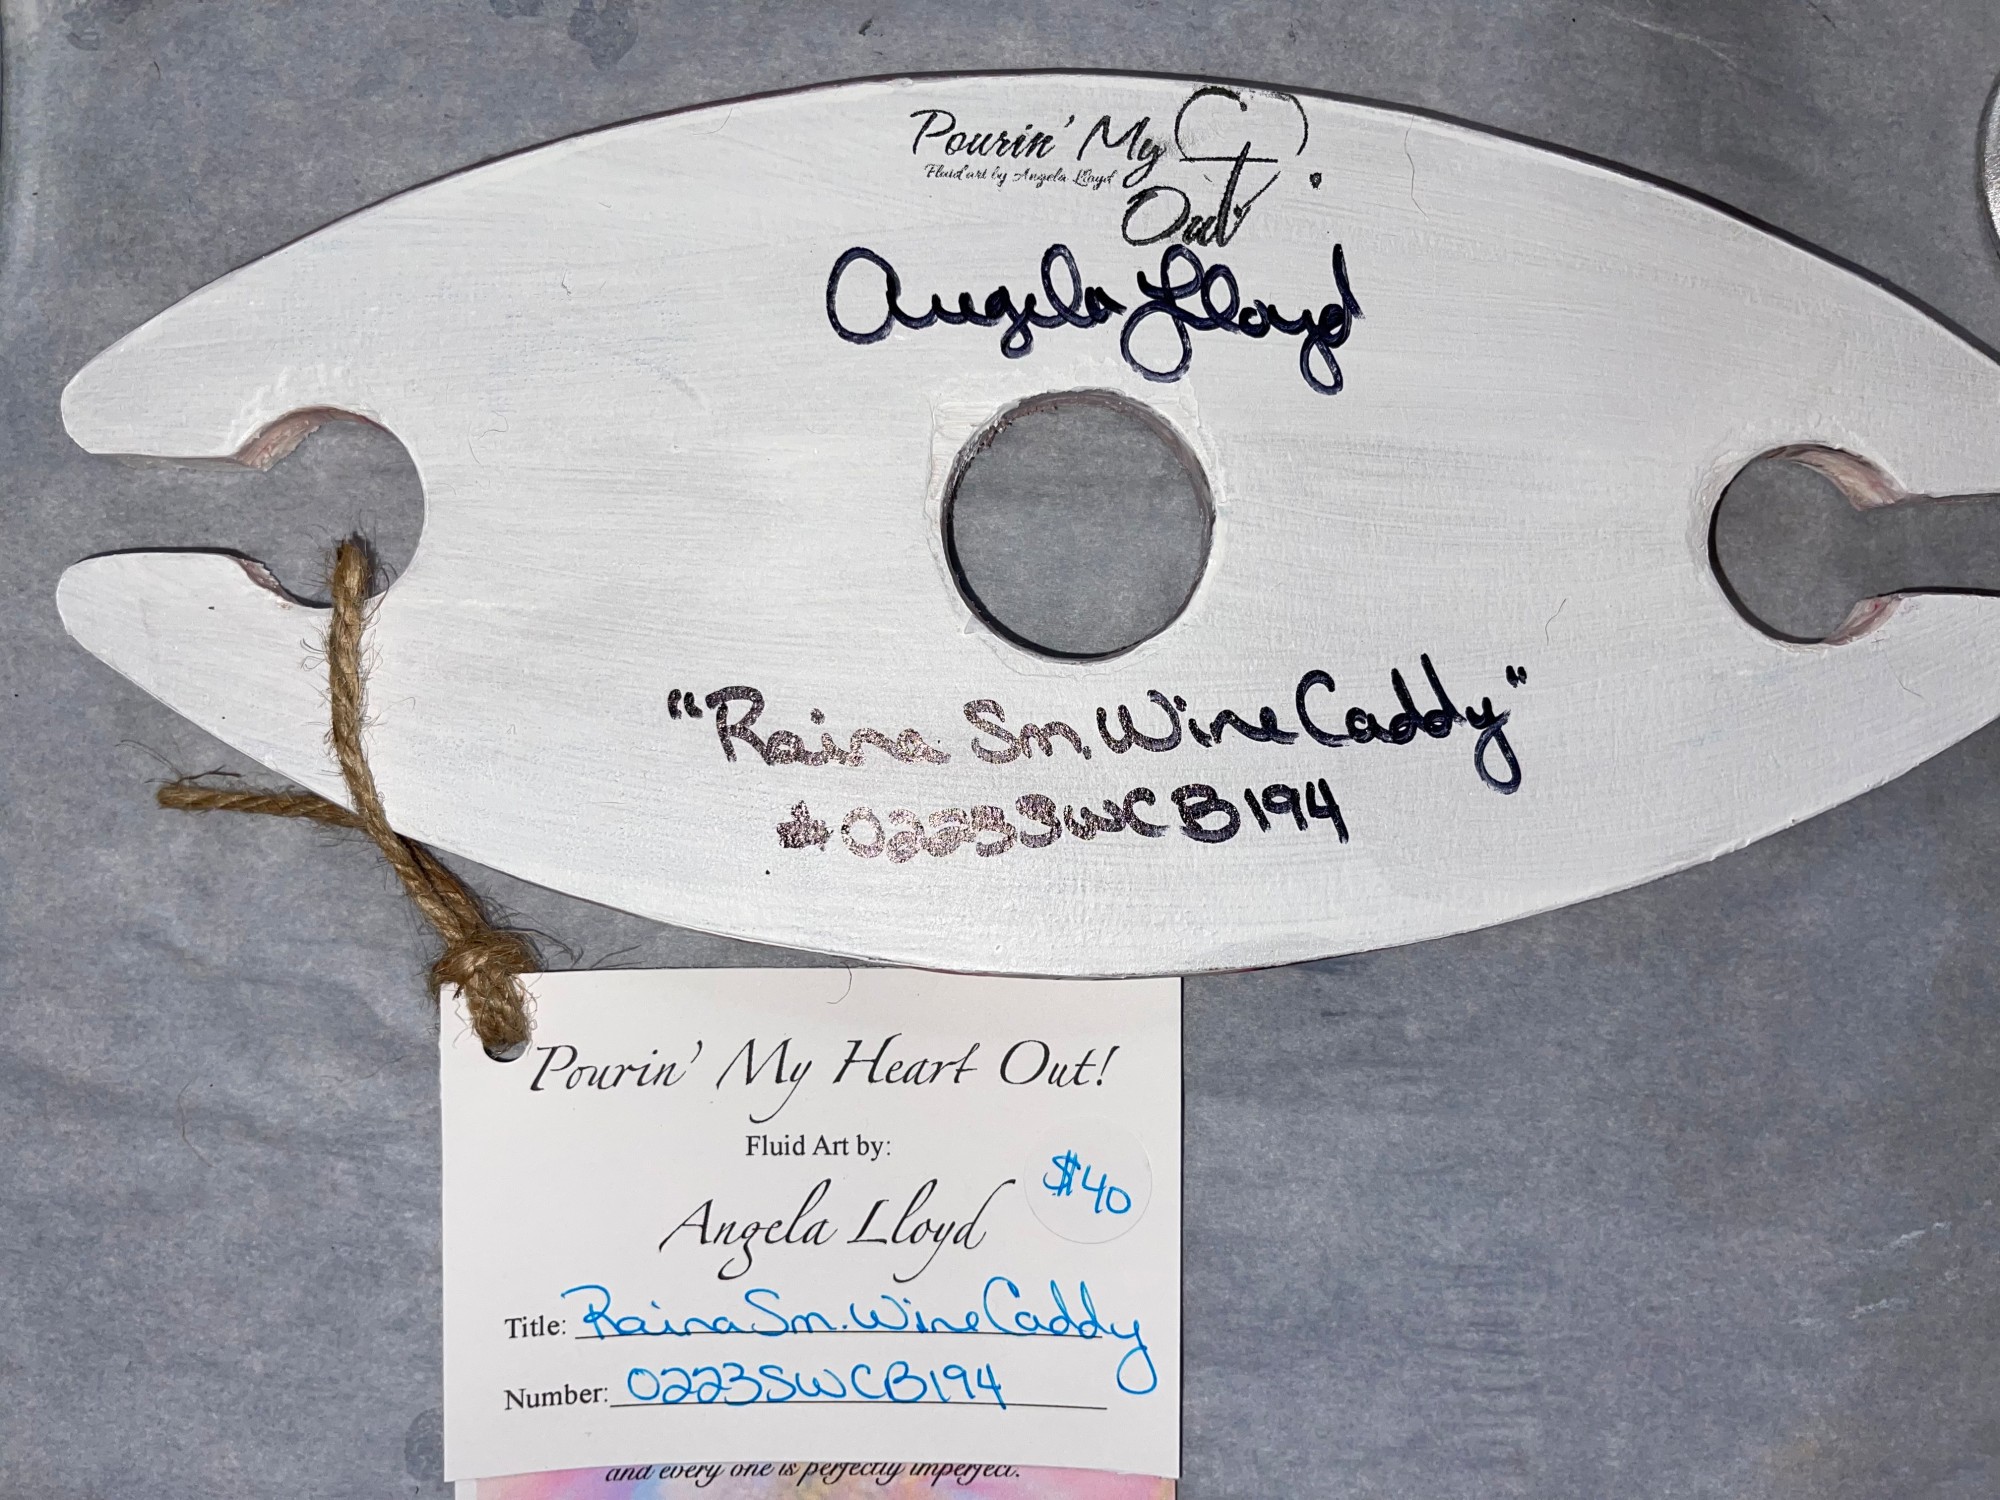 Pourin' My
Fluid art by Angela Lloyd
Out
Angela Lloyd
"Raina Sm. Wine Caddy"
#0223SWCB194
Pourin' My Heart Out!
Fluid Art by:
$40
Angela Lloyd
Title: Raina Sm. Wine Caddy
Number: 0223SWCB194
and every one is perfectly imperfect.